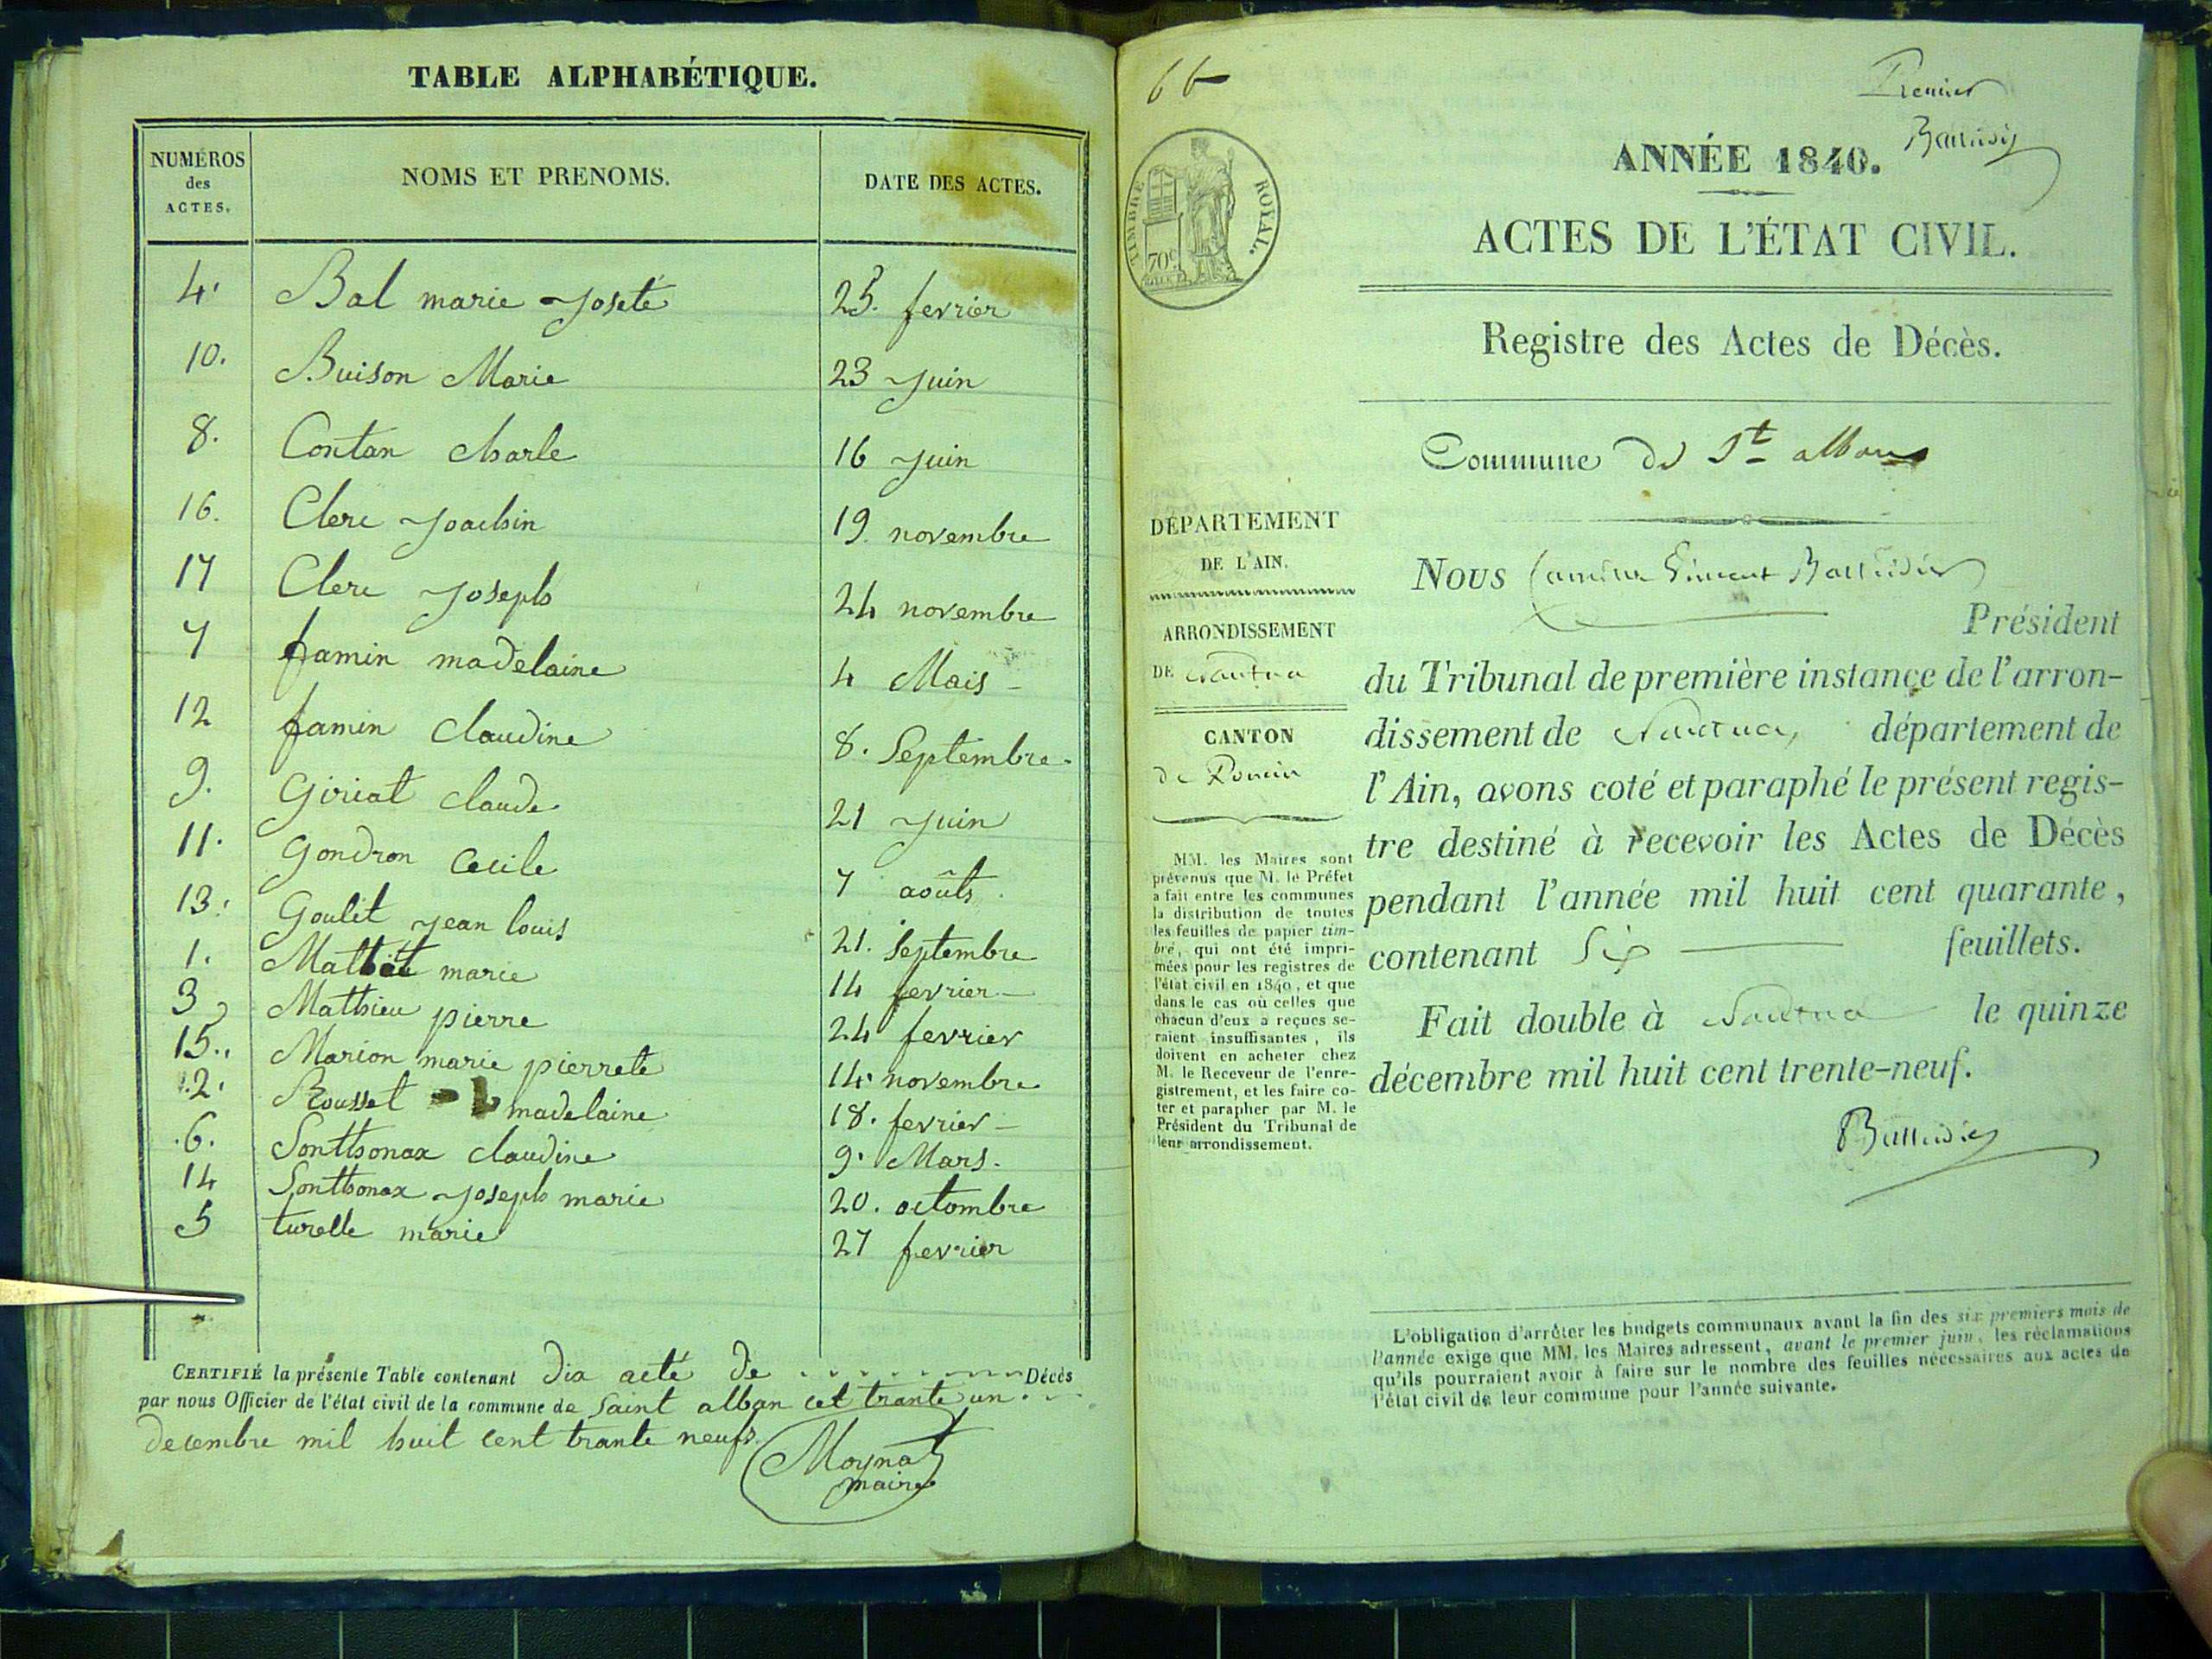 TABLE ALPHABÉTIQUE.
NUMÉROS
des
ACTES.
NOMS ET PRENOMS.
DATE DES ACTES.
4. Bal marie Joseté 25. fevrier
10. Buison Marie 23 Juin
8. Contan charle 16 Juin
16. Clerc Joachin 19. novembre
17 Clerc Joseph 24 novembre
7 famin madelaine 4 Mais
12 famin claudine 8. Septembre
9. Giriat claude 21 Juin
11. Gondron Cecile 7 aoûts
13. Goulet jean louis 21. Septembre
1. Mathet marie 14 fevrier
3 Mathieu pierre 24 fevrier
15. Marion marie pierrete 14 novembre
2. Rousset madelaine 18. fevrier
6. Sonthonax claudine 9. Mars.
14 Sonthonax Joseph marie 20. octombre
5 turelle marie 27 fevrier
CERTIFIÉ la présente Table contenant dix acté de Décès
par nous Officier de l'état civil de la commune de Saint alban cet trante un
decembre mil huit cent trante neufs
Moynat
maire
66
Premier
TIMBRE ROYAL.
70c
ANNÉE 1840.
ACTES DE L'ÉTAT CIVIL.
Registre des Actes de Décès.
Commune de St alban
DÉPARTEMENT
DE L'AIN.
ARRONDISSEMENT
DE Nantua
CANTON
de Poncin
MM. les Maires sont
prévenus que M. le Préfet
a fait entre les communes
la distribution de toutes
les feuilles de papier tim-
bré, qui ont été impri-
mées pour les registres de
l'état civil en 1840, et que
dans le cas où celles que
chacun d'eux a reçues se-
raient insuffisantes, ils
doivent en acheter chez
M. le Receveur de l'enre-
gistrement, et les faire co-
ter et parapher par M. le
Président du Tribunal de
leur arrondissement.
Nous
Président
du Tribunal de première instance de l'arron-
dissement de Nantua, département de
l'Ain, avons coté et paraphé le présent regis-
tre destiné à recevoir les Actes de Décès
pendant l'année mil huit cent quarante,
contenant Six feuillets.
Fait double à Nantua le quinze
décembre mil huit cent trente-neuf.
L'obligation d'arrêter les budgets communaux avant la fin des six premiers mois de
l'année exige que MM. les Maires adressent, avant le premier juin, les réclamations
qu'ils pourraient avoir à faire sur le nombre des feuilles nécessaires aux actes de
l'état civil de leur commune pour l'année suivante.